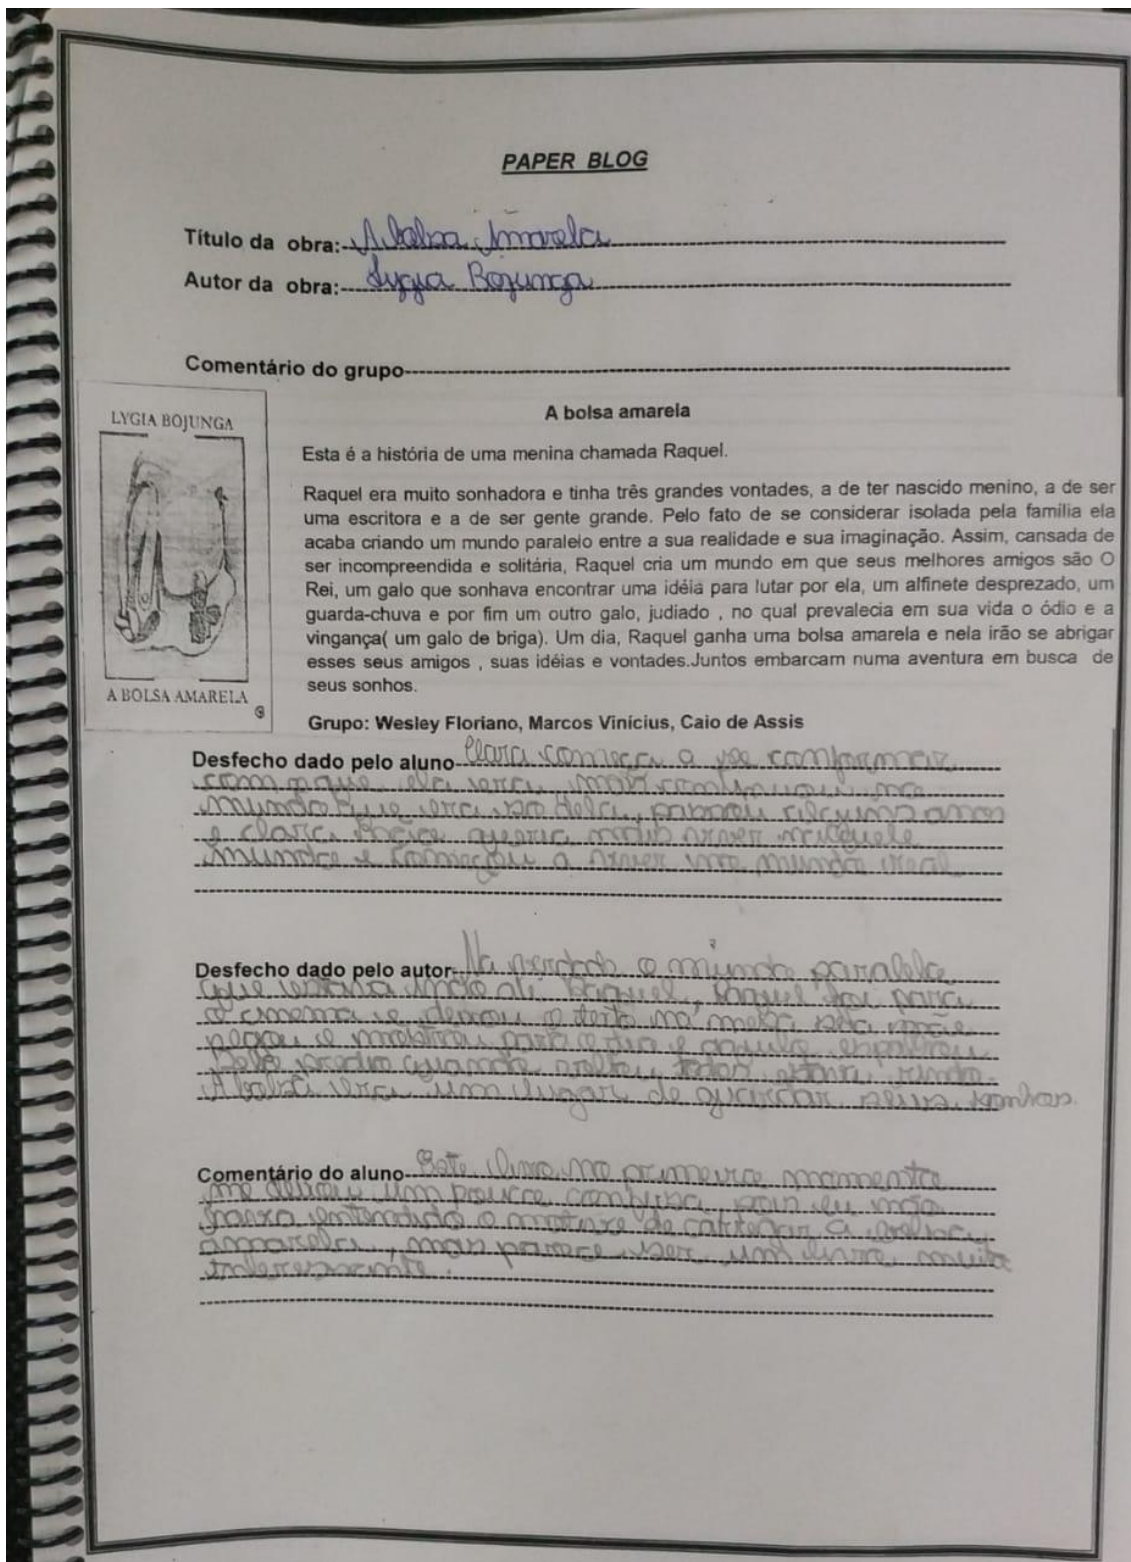 PAPER BLOG
Título da obra: A bolsa Amarela
Autor da obra: Lygia Bojunga
Comentário do grupo
LYGIA BOJUNGA
A BOLSA AMARELA
A bolsa amarela
Esta é a história de uma menina chamada Raquel.
Raquel era muito sonhadora e tinha três grandes vontades, a de ter nascido menino, a de ser
uma escritora e a de ser gente grande. Pelo fato de se considerar isolada pela família ela
acaba criando um mundo paralelo entre a sua realidade e sua imaginação. Assim, cansada de
ser incompreendida e solitária, Raquel cria um mundo em que seus melhores amigos são O
Rei, um galo que sonhava encontrar uma idéia para lutar por ela, um alfinete desprezado, um
guarda-chuva e por fim um outro galo, judiado , no qual prevalecia em sua vida o ódio e a
vingança( um galo de briga). Um dia, Raquel ganha uma bolsa amarela e nela irão se abrigar
esses seus amigos , suas idéias e vontades.Juntos embarcam numa aventura em busca de
seus sonhos.
Grupo: Wesley Floriano, Marcos Vinícius, Caio de Assis
Desfecho dado pelo aluno Clara começa a se conformar
com o que ela era, mais continuou no
mundo que era so dela, passou alguns anos
e clara queria viver naquele
mundo e começou a viver no mundo real
Desfecho dado pelo autor Na verdade o mundo paralelo
que Raquel, Raquel foi para
o cinema e deixou o texto na mesa sua mãe
pegou e mostrou para e espalhou
pelo predio quando voltou todos rindo.
A bolsa era um lugar de guardar seus sonhos.
Comentário do aluno Este livro no primeiro momento
me deixou um pouco confusa, pois eu não
entendido o motivo de a bolsa
amarela, mais parece ser um livro muito
interessante.